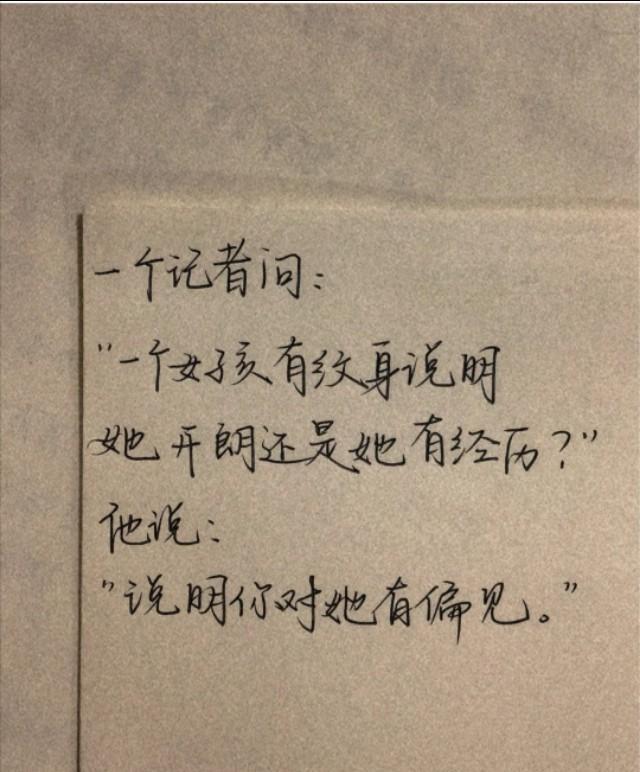 一个记者问：
"一个女孩有纹身说明
她开朗还是她有经历？"
他说：
"说明你对她有偏见。"